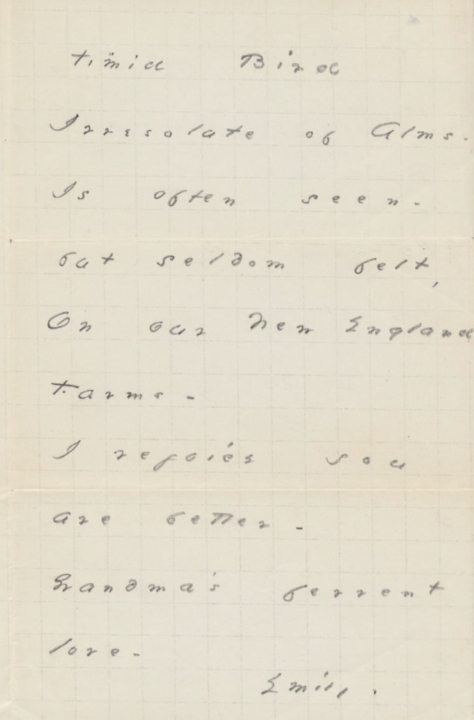 timid Bird
Irresolute of Alms -
Is often seen -
but seldom felt,
On our New England
Farms -
I rejoice you
are better -
Grandma's fervent
love -
Emily.